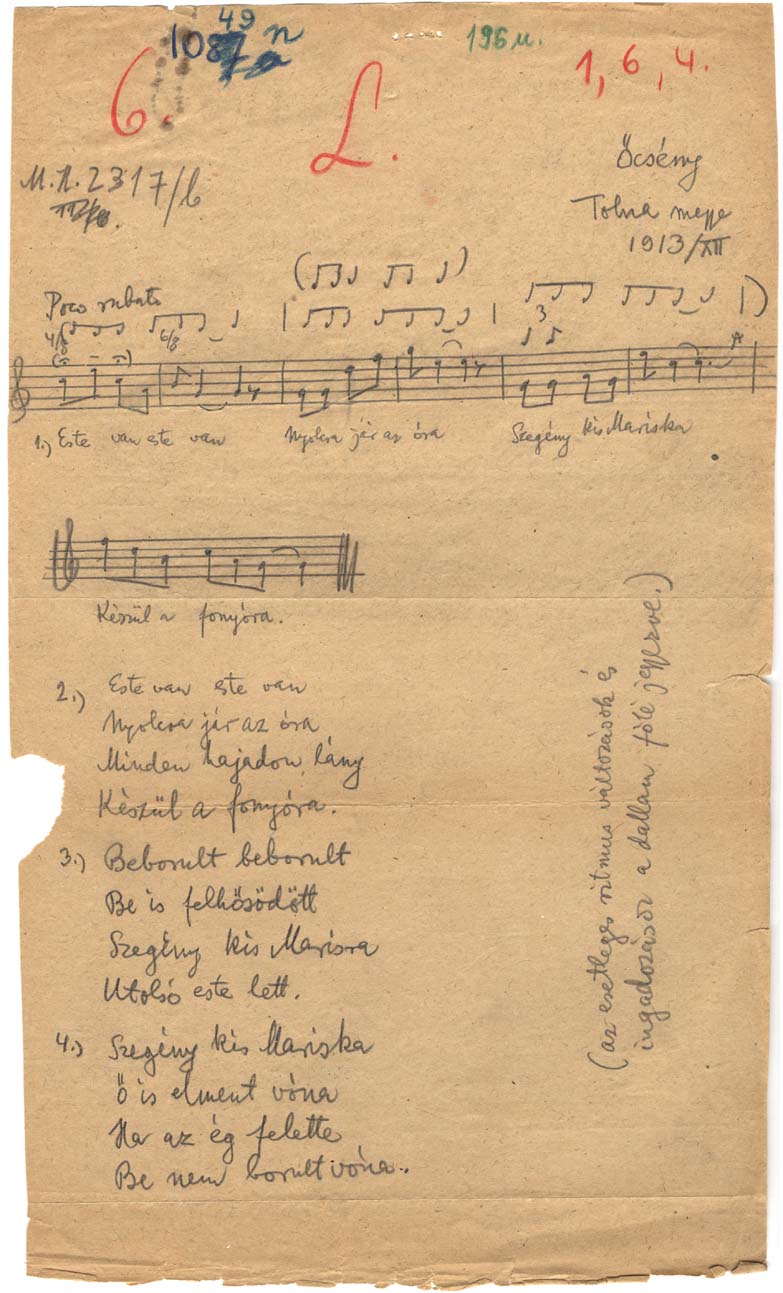 49
1087 n
a
196 u.
6.
L.
1, 6, 4.
M.H. 2317/b
Őcsény
Tolna megye
1913/XII
Poco rubato
4/8
6/8
3
1.) Este van este van Nyolcra jár az óra Szegény kis Mariska
Készül a fonyóra.
2.) Este van este van
Nyolcra jár az óra
Minden hajadon lány
Készül a fonyóra.
3.) Beborult beborult
Be is felhősödött
Szegény kis Mariska
Utolsó este lett.
4.) Szegény kis Mariska
Ő is elment vóna
Ha az ég felette
Be nem borult vóna.
(az esetleges ritmus változások és
ingadozások a dallam fölé jegyezve.)